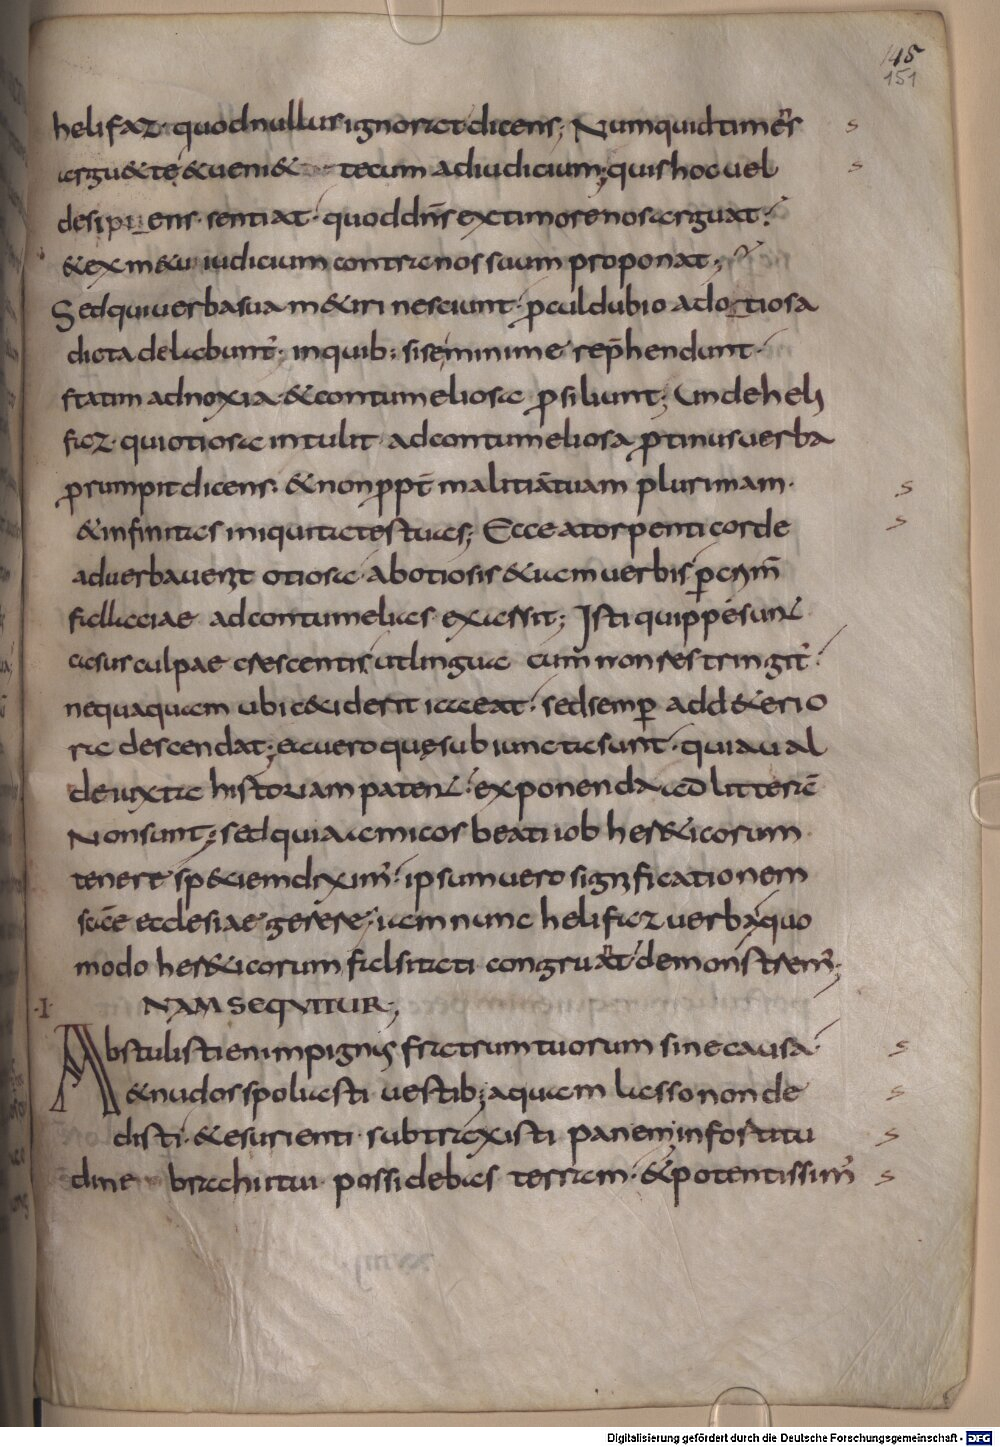 145
151
helifaz · quod nullus ignoret dicens; Numquid timens s
arguet te & veni& tecum ad iudicium; quis hoc vel s
desipiens · sentiat · quod dn̄s ex timore nos arguat?
& ex m&u iudicium contra nos suum proponat;
Sed qui verba sua m&iri nesciunt · p̄cul dubio ad otiosa
dicta delabunt̄ · in quib; si se minime rep̄hendunt ·
statim ad noxia & contumeliosa p̄siliunt; Unde heli
faz · qui otiosa intulit ad contumeliosa p̄tinus verba
prorumpit dicens · & non p̄pt̄ malitiā tuam plurimam · s
& infinitas iniquitates tuas; Ecce a torpenti corde s
ad verba venit otiosa · ab otiosis &uam verbis p̄ cym̄
fallaciae ad contumelias exarsit; Isti quippe sunt
casus culpae crescentis ut lingua cum non restringit̄ ·
nequaquam ubi ceciderit iaceat · sed semp̄ ad d&erio
ra descendat; ea vero quę subiuncta sunt · quia val
de iuxta historiam patent · exponenda ad litterā
Non sunt; sed quia amicos beati iob her&icorum
tenere speciem diximus · ipsum vero significationem
scāe ecclesiae gerere; iam nunc helifaz verba quo
modo her&icorum falsitati congruant demonstremus;
·I· NAM SEQVITUR;
Abstulisti enim pignus fratrum tuorum sine causa · s
& nudos spoliasti vestib; aquam lasso non de s
disti · & esurienti · subtraxisti panem; in fortitu s
dine brachii tui possidebas terram · & potentissimus s
Digitalisierung gefördert durch die Deutsche Forschungsgemeinschaft - DFG